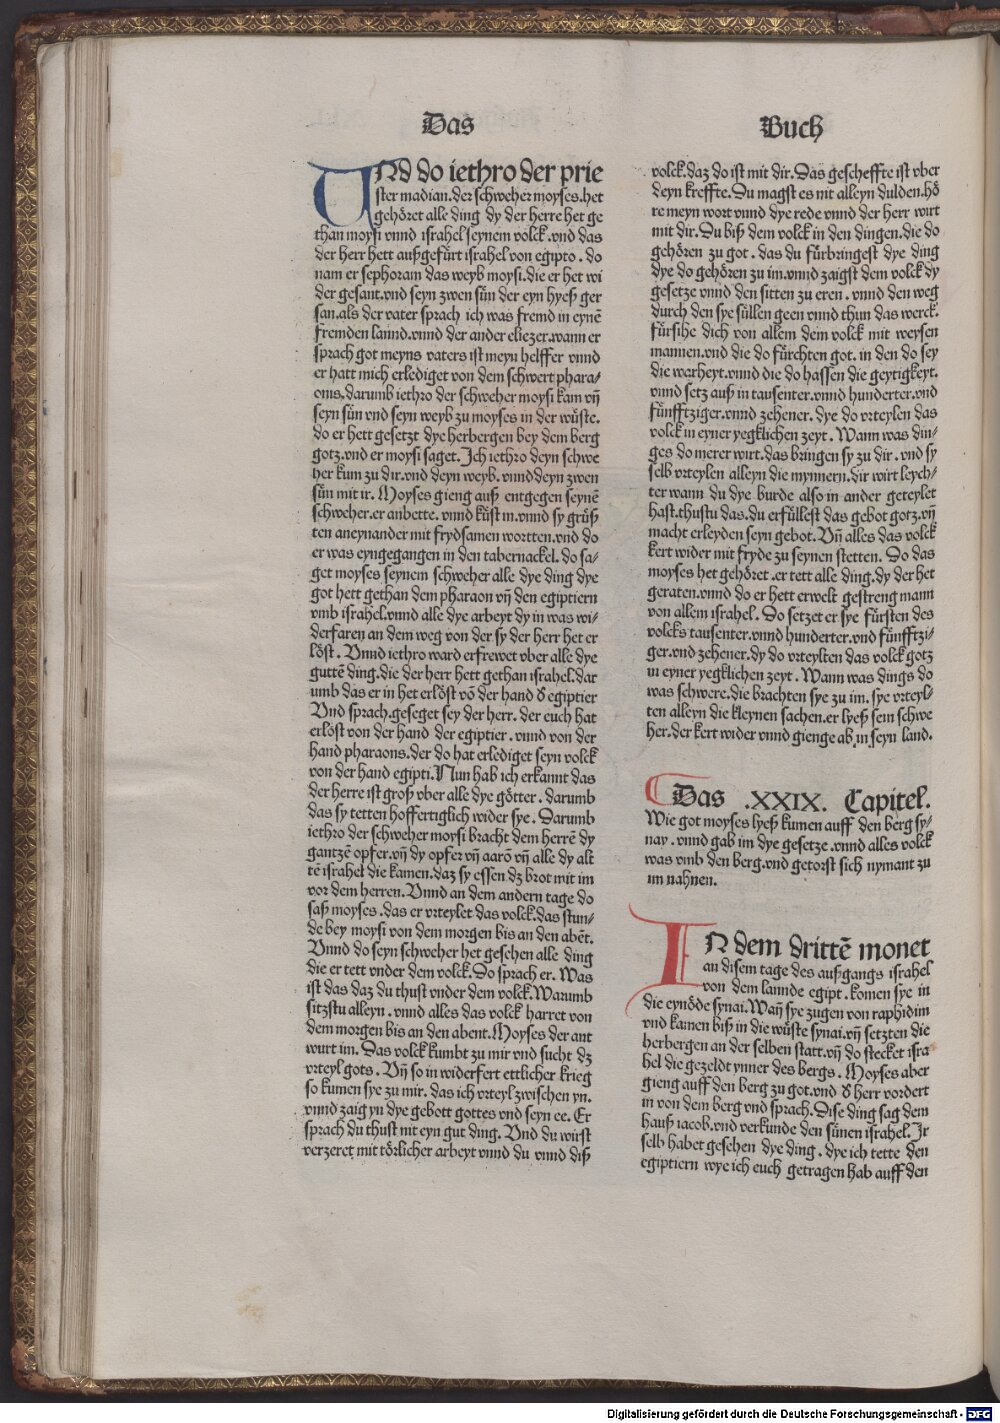 Das
Buch
VNd do iethro der prie
ster madian.der schweher moyses.het
gehöret alle ding dy der herre het ge
than moysi vnnd israhel seynem volck.vnd das
der herr hett außgefürt israhel von egipto.do
nam er sephoram das weyb moysi.die er het wi
der gesant.vnd seyn zwen sün der eyn hyeß ger
san.als der vater sprach ich was fremd in eynē
fremden lannd.vnnd der ander eliezer.wann er
sprach got meyns vaters ist meyn helffer vnnd
er hatt mich erlediget von dem schwert phara-
onis.darumb iethro der schweher moysi kam vñ
seyn sün vnd seyn weyb zu moyses in der wüste.
do er hett gesetzt dye herbergen bey dem berg
gotz.vnd er moysi saget.Ich iethro deyn schwe
her kum zu dir.vnd deyn weyb.vnnd deyn zwen
sün mit ir.Moyses gieng auß entgegen seynē
schweher.er anbette.vnnd küst in.vnnd sy grüß
ten aneynander mit frydsamen wortten.vnd do
er was eyngegangen in den tabernackel.do sa-
get moyses seynem schweher alle dye ding dye
got hett gethan dem pharaon vñ den egiptiern
vmb israhel.vnnd alle dye arbeyt dy in was wi-
derfaren an dem weg von der sy der herr het er
löst.Vnnd iethro ward erfrewet vber alle dye
guttē ding.die der herr hett gethan israhel.dar
umb das er in het erlöst vō der hand d̕ egiptier
Vnd sprach.geseget sey der herr.der euch hat
erlöst von der hand der egiptier.vnnd von der
hand pharaons.der do hat erlediget seyn volck
von der hand egipti.Nun hab ich erkannt das
der herre ist groß vber alle dye götter.darumb
das sy tetten hoffertiglich wider sye.Darumb
iethro der schweher moysi bracht dem herrē dy
gantzē opfer.vñ dy opfer vñ aarō vñ alle dy alt
tē israhel die kamen.daz sy essen dz brot mit im
vor dem herren.Vnnd an dem andern tage do
saß moyses.das er vrteylet das volck.das stun-
de bey moysi von dem morgen bis an den abēt.
Vnnd do seyn schweher het gesehen alle ding
die er tett vnder dem volck.Do sprach er.Was
ist das daz du thust vnder dem volck.Warumb
sitzstu alleyn.vnnd alles das volck harret von
dem morgen bis an den abent.Moyses der ant
wurt im.Das volck kumbt zu mir vnd sucht dz
vrteyl gots.Vñ so in widerfert ettlicher krieg
so kumen sye zu mir.das ich vrteyl zwischen yn.
vnnd zaig yn dye gebott gottes vnd seyn ee.Er
sprach du thust nit eyn gut ding.Vnd du würst
verzeret mit törlicher arbeyt vnnd du vnnd diß
volck.daz do ist mit dir.Das gescheffte ist vber
deyn kreffte.Du magst es nit alleyn dulden.hö
re meyn wort vnnd dye rede vnnd der herr wirt
mit dir.Du biß dem volck in den dingen.die do
gehören zu got.das du fürbringest dye ding
dye do gehören zu im.vnnd zaigst dem volck dy
gesetze vnnd den sitten zu eren.vnnd den weg
durch den sye süllen geen vnnd thun das werck.
fürsihe dich von allem dem volck mit weysen
mannen.vnd die do fürchten got.in den do sey
die warheyt.vnnd die do hassen die geytigkeyt.
vnnd setz auß in tausenter.vnnd hunderter.vnd
fünfftziger.vnnd zehener.dye do vrteylen das
volck in eyner yegklichen zeyt.Wann was din-
ges do merer wirt.das bringen sy zu dir.vnd sy
selb vrteylen alleyn die mynnern.dir wirt leych-
ter wann du dye burde also in ander geteylet
hast.thustu das.du erfüllest das gebot gotz.vñ
macht erleyden seyn gebot.Vñ alles das volck
kert wider mit fryde zu seynen stetten.Do das
moyses het gehöret.er tett alle ding.dy der het
geraten.vnnd do er hett erwelt gestreng mann
von allem israhel.Do setzet er sye fürsten des
volcks tausenter.vnnd hunderter.vnd fünfftzi-
ger.vnd zehener.dy do vrteylten das volck gotz
in eyner yegklichen zeyt.Wann was dings do
was schwere.die brachten sye zu im.sye vrteyl-
ten alleyn die kleynen sachen.er lyeß sein schwe
her.der kert wider vnnd gienge ab in seyn land.
Das .XXIX. Capitel.
Wie got moyses lyeß kumen auff den berg sy-
nay.vnnd gab im dye gesetze.vnnd alles volck
was vmb den berg.vnd getorst sich nymant zu
im nahnen.
IN dem drittē monet
an disem tage des außgangs israhel
von dem lannde egipt.komen sye in
die eynöde synai.Wañ sye zugen von raphidim
vnd kamen biß in die wüste synai.vñ setzten die
herbergen an der selben statt.vñ do stecket isra
hel die gezeldt ynner des bergs.Moyses aber
gieng auff den berg zu got.vnd d̕ herr vordert
in von dem berg vnd sprach.Dise ding sag dem
hauß iacob.vnd verkunde den sünen israhel.Ir
selb habet gesehen dye ding.dye ich tette den
egiptiern wye ich euch getragen hab auff den
Digitalisierung gefördert durch die Deutsche Forschungsgemeinschaft - DFG